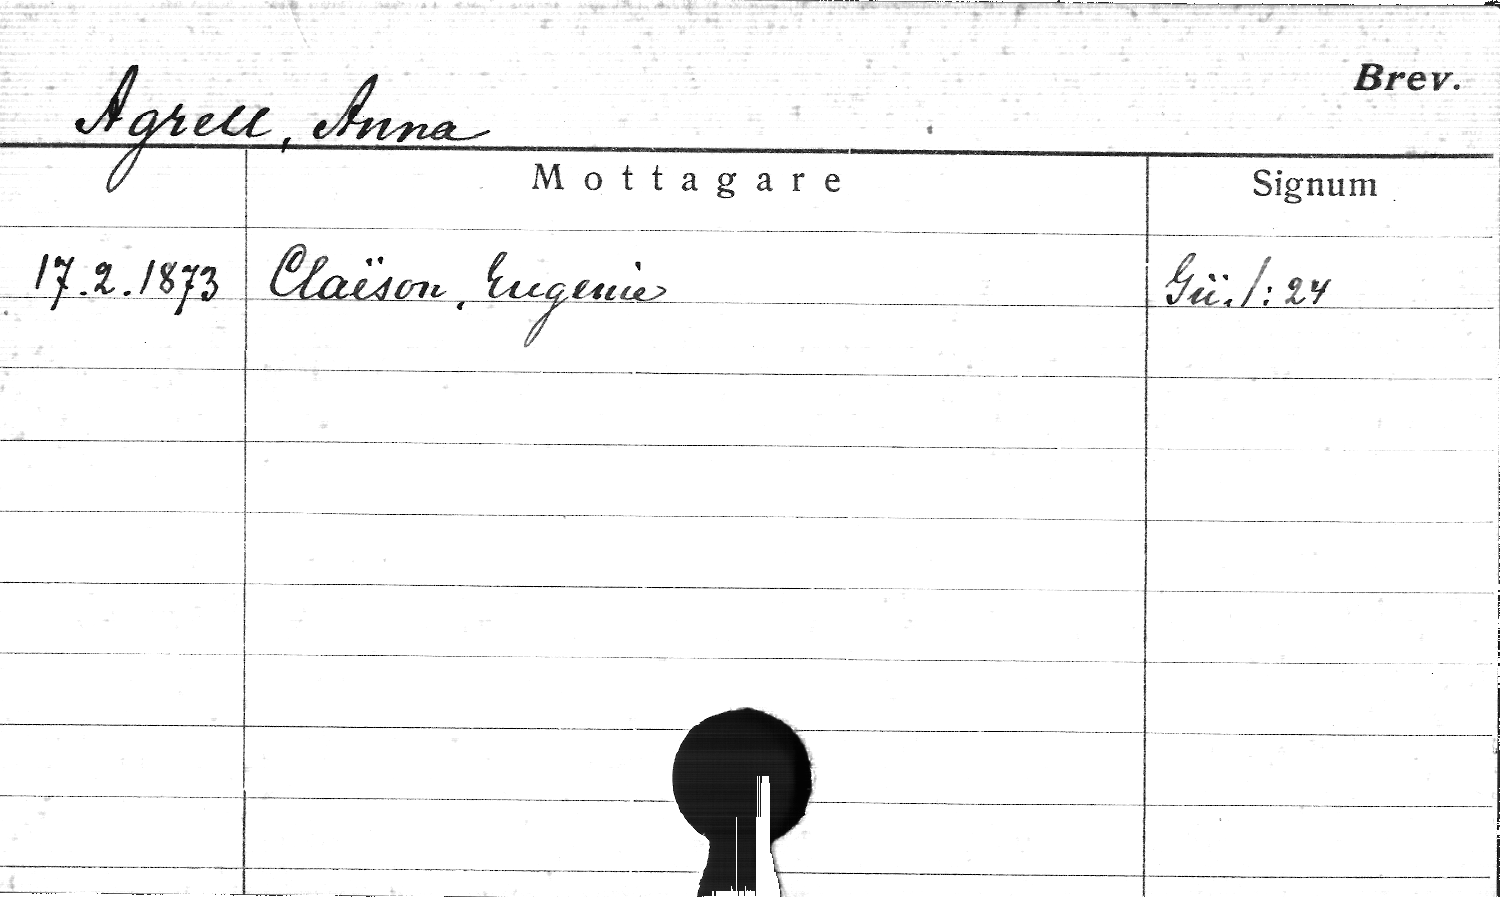 Brev.
Agrell, Anna
Mottagare Signum
17.2.1873 Claëson, Eugenie Gü./:24